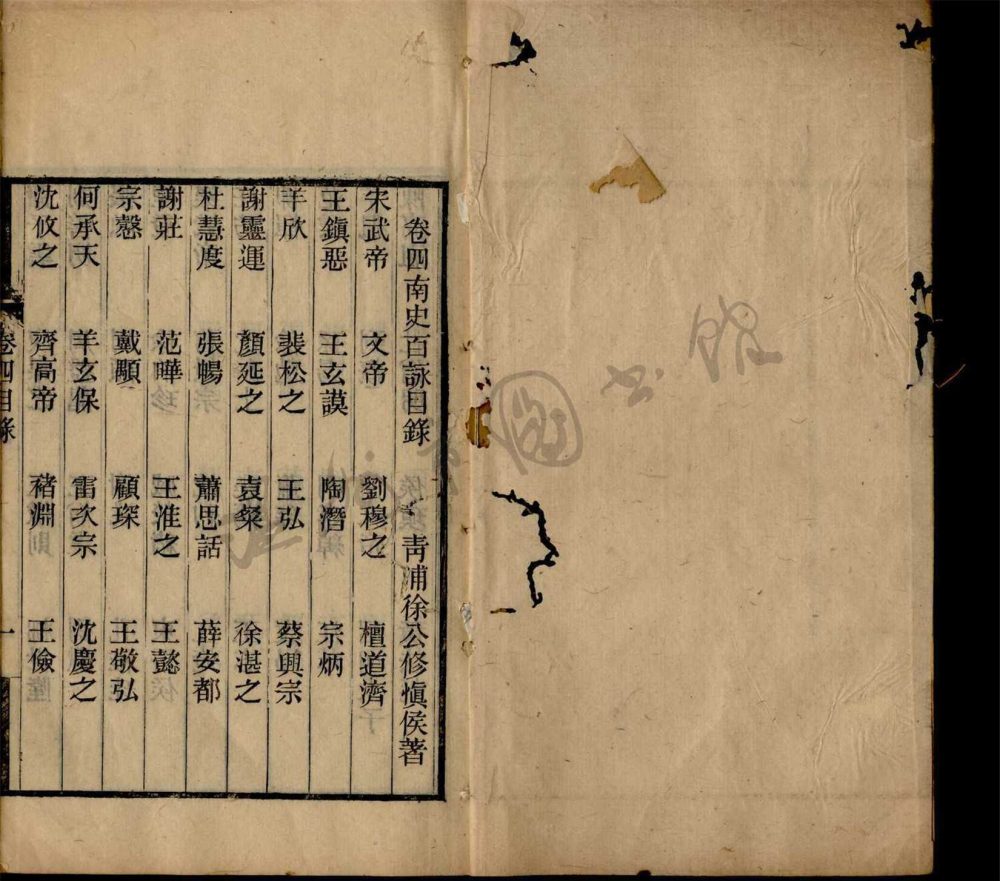 卷四南史百詠目錄 青浦徐公修慎侯著
宋武帝 文帝 劉穆之 檀道濟
王鎮惡 王玄謨 陶潛 宗炳
羊欣 裴松之 王弘 蔡興宗
謝靈運 顏延之 袁粲 徐湛之
杜慧度 張暢 蕭思話 薛安都
謝莊 范曄 王淮之 王懿
宗慤 戴顒 顧琛 王敬弘
何承天 羊玄保 雷次宗 沈慶之
沈攸之 齊高帝 褚淵 王儉
卷四目錄 一
圖書館